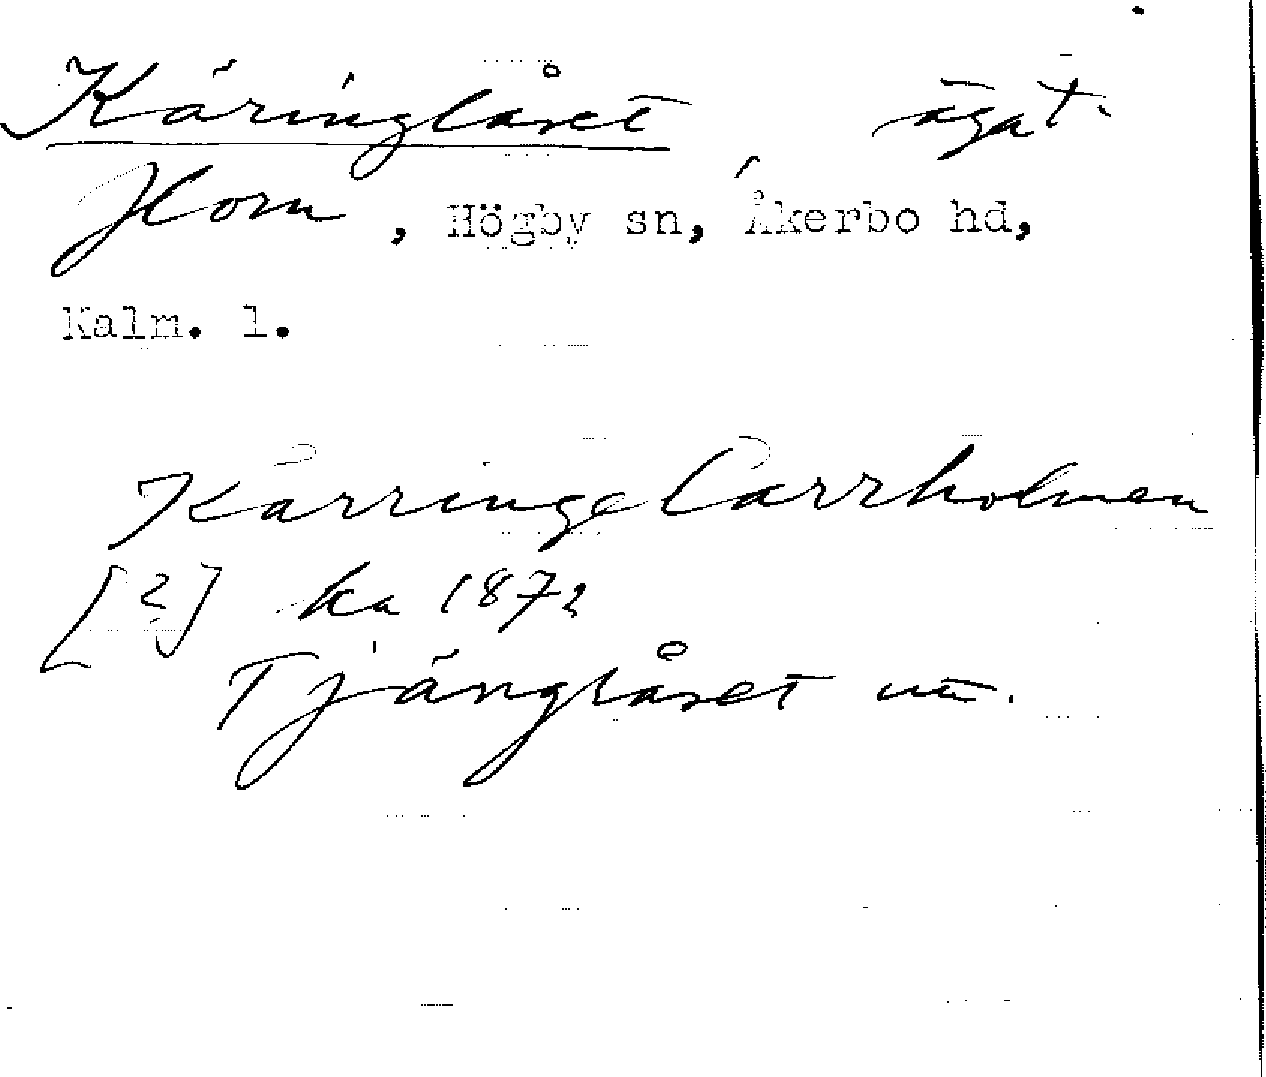 Käringlåset ägat.
Horn, Högby sn, Åkerbo hd,
Kalm. l.
Kärringe Carrholmen
[?] ka 1872
Tjänglåset nu.